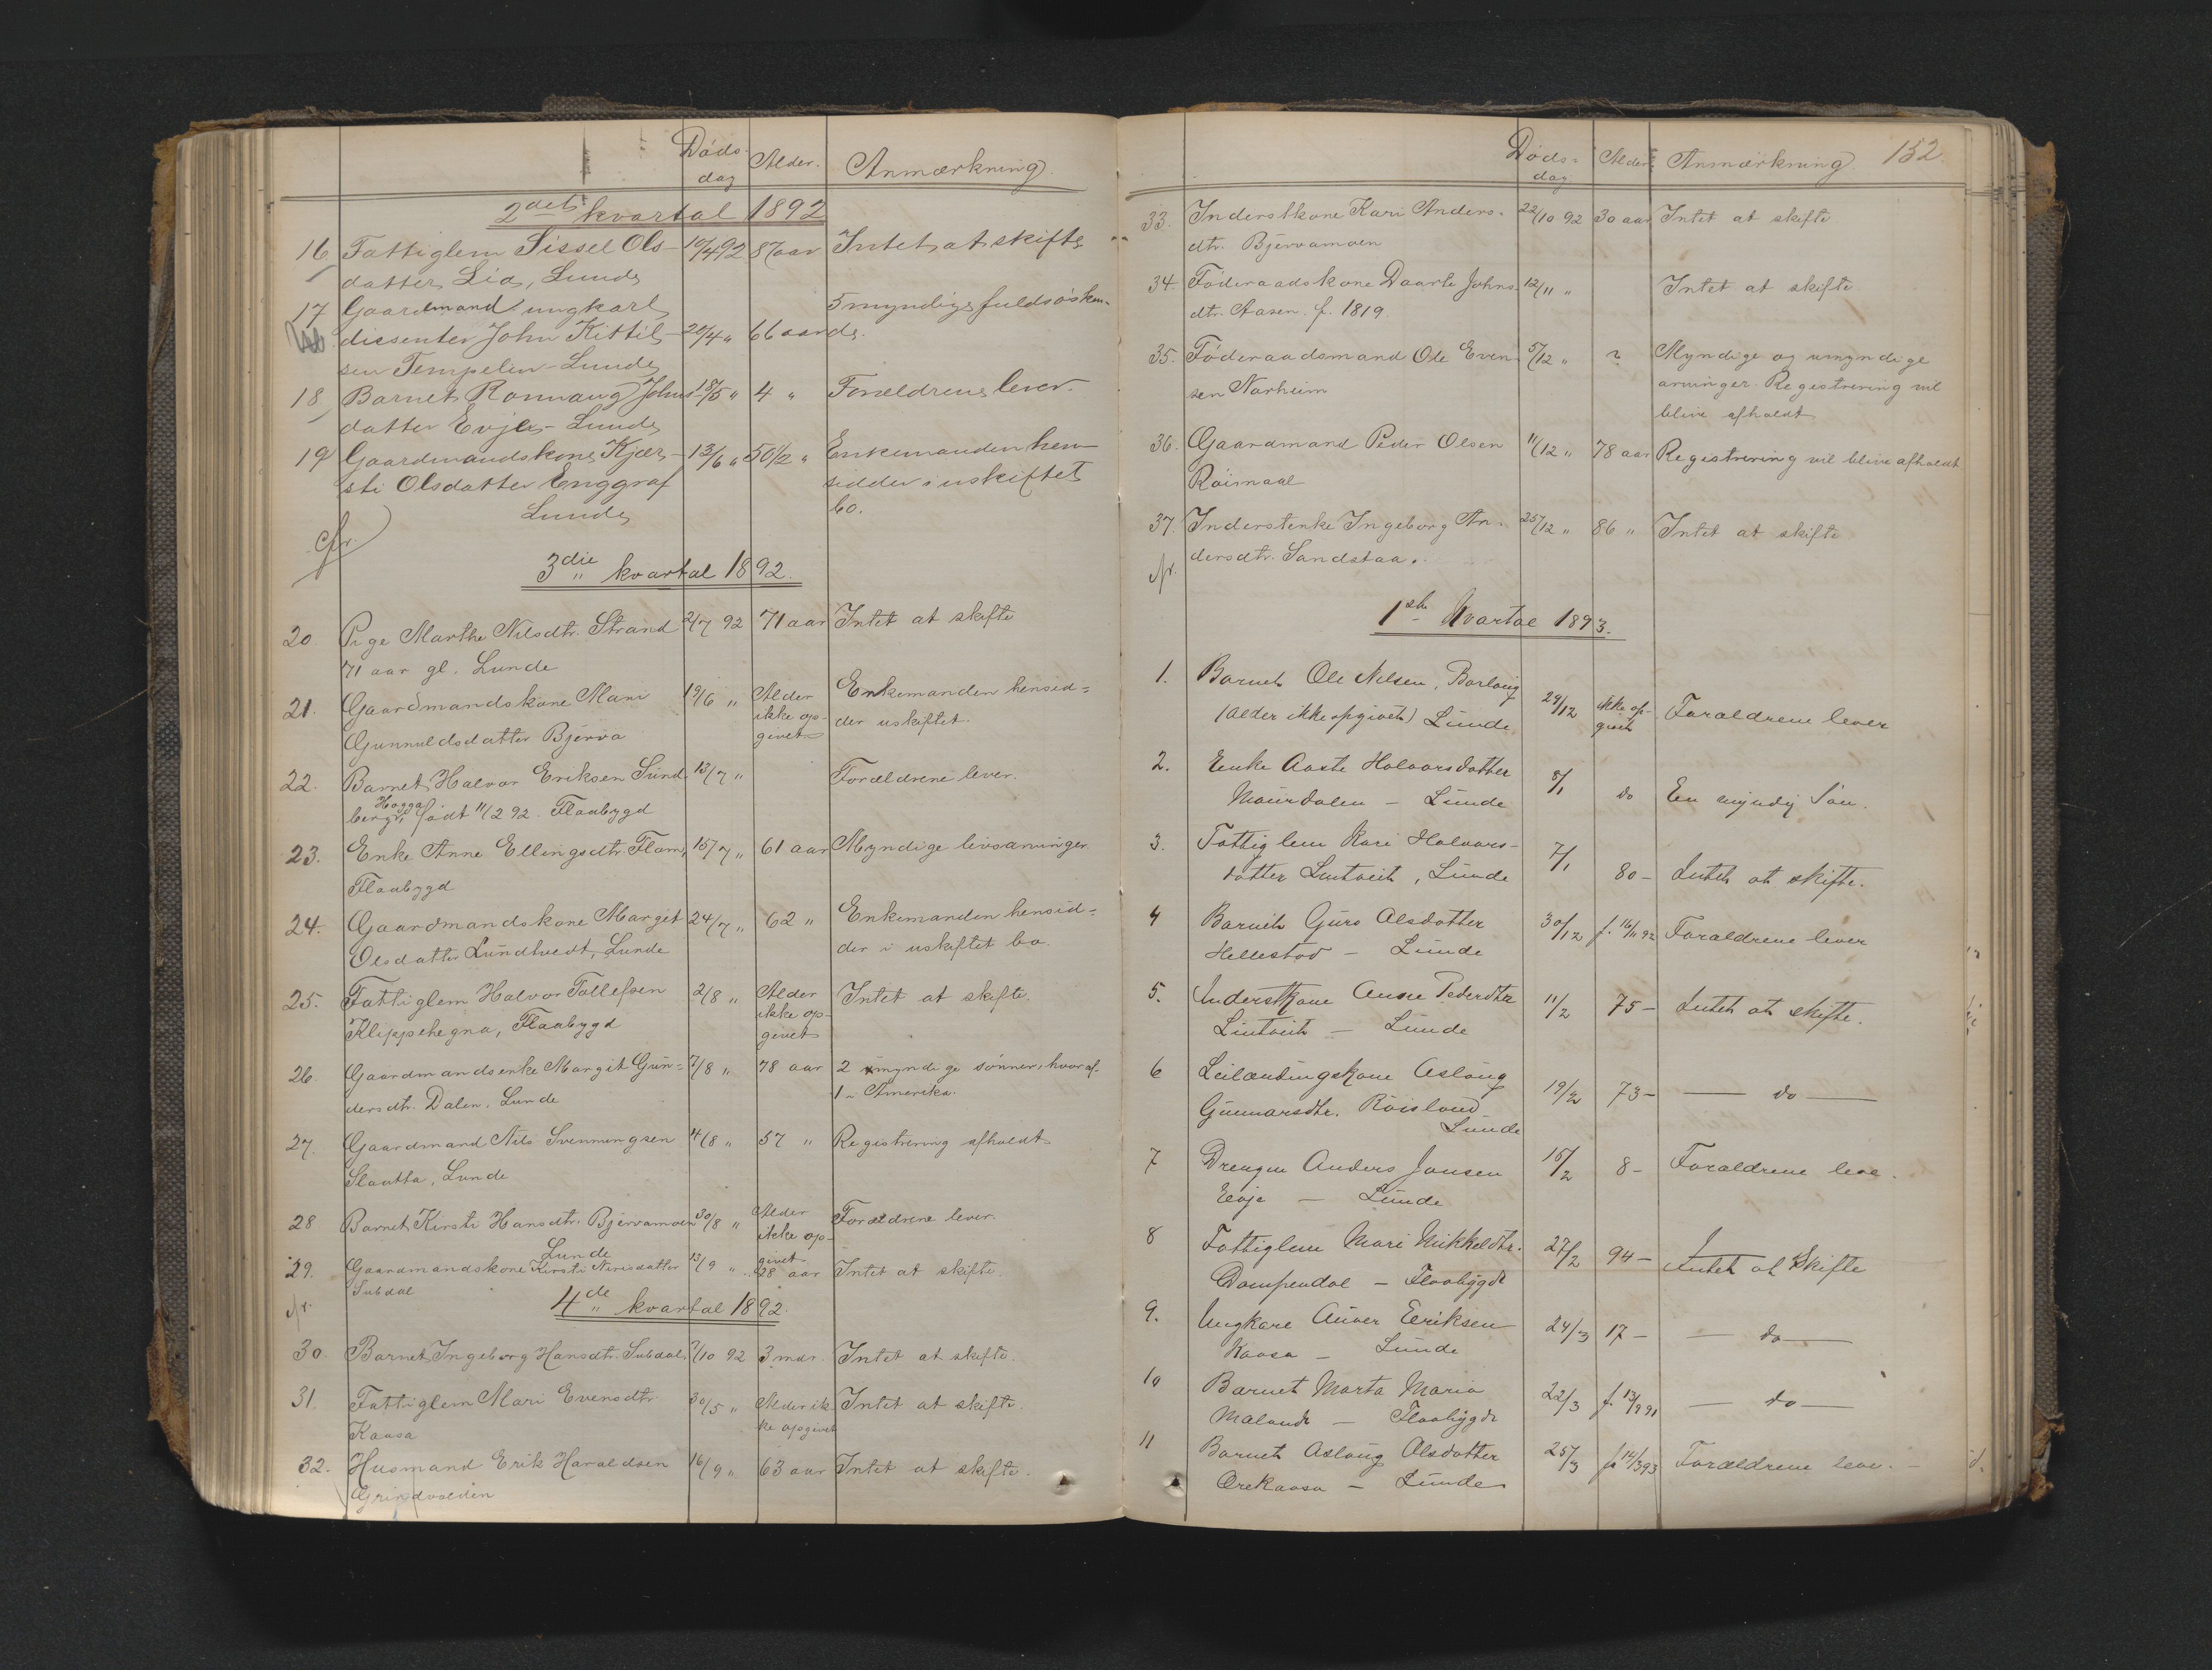 Døds-
dag
Alder.
Anmærkning.
2det kvartal 1892
16 Fattiglem Sissel Ols- 10/4 92 87 aar Intet at skifte
datter Lia, Lunde
17 Gaardmand ungkarl 5 myndige fuldsøsken-
dissenter John Kittil- 20/4 " 66 aar de.
sen Tempelen - Lunde
18 Barnet Ronnaug Johns- 18/5 " 4 " Forældrene lever.
datter Evje - Lunde
19 Gaardmandskone Kjær- 13/6 " 50 1/2 " Enkemanden hen-
sti Olsdatter Enggraf sidder i uskiftet
Lunde bo.
3die kvartal 1892.
20. Pige Marthe Nilsdtr. Strand 2/7 92 71 aar Intet at skifte
71 aar gl. Lunde
21. Gaardmandskone Mari 19/6 " Alder Enkemanden hensid-
ikke op- der uskiftet.
Gunnuldsdatter Bjerva givet
22. Barnet Halvor Eriksen Sund- 13/7 " Forældrene lever.
Hogga
berg, født 11/2 92. Flaabygd
23. Enke Anne Ellingsdtr. Flom, 15/7 " 61 aar Myndige livsarvinger.
Flaabygd
24. Gaardmandskone Margit 24/7 " 62 " Enkemanden hensid-
Olsdatter Lundtvedt, Lunde der i uskiftet bo.
25. Fattiglem Halvor Tollefsen 2/8 " Alder Intet at skifte.
ikke op-
Klippehegna, Flaabygd givet
26. Gaardmandsenke Margit Gun- 7/8 " 78 aar 2 myndige sønner, hvoraf
dersdtr. Dalen. Lunde 1 i Amerika.
27. Gaardmand Nils Svenningsen 4/8 " 57 " Registrering afholdt
Slaatta, Lunde
28 Barnet Kirsti Hansdtr. Bjervamoen 30/8 " Alder Forældrene lever.
ikke op-
Lunde givet
29. Gaardmandskone Kirsti Nirisdatter 13/9 " 28 aar Intet at skifte.
Subdal
4de kvartal 1892.
30. Barnet Ingeborg Hansdtr. Subdal. 7/10 92 3 mdr. Intet at skifte.
31. Fattiglem Mari Evensdtr 30/5 " Alder ik- Intet at skifte.
Kaasa ke opgivet
32. Husmand Erik Haraldsen 16/9 " 63 aar Intet at skifte.
Grindvolden
Døds-
dag
Alder
Anmærkning.
152.
33. Inderstkone Kari Anders- 22/10 92 30 aar Intet at skifte
dtr. Bjervamoen
34. Føderaadskone Daarte Johns- 12/11 " Intet at skifte
dtr. Aasen. f. 1819.
35. Føderaadsmand Ole Even- 5/12 " ? Myndige og umyndige
sen Narheim arvinger. Registrering vil
blive afholdt
36. Gaardmand Peder Olsen 11/12 " 78 aar Registrering vil blive afholdt
Røimaal
37. Inderstenke Ingeborg An- 25/12 " 86 " Intet at skifte
dersdtr. Sandstaa.
1ste Kvartal 1893.
1. Barnet Ole Nilsen, Borlaug 29/12 ikke op- Forældrene lever
(Alder ikke opgivet) Lunde givet
2. Enke Aaste Halvorsdatter 8/1 do En myndig Søn.
Maurdalen - Lunde
3. Fattiglem Kari Halvors- 7/1 80 - Intet at skifte.
datter Lintveit, Lunde
4 Barnet Guro Olsdatter 30/12 f. 16/11 92 Forældrene lever
Hellestad - Lunde
5. Inderstkone Anne Pedersdtr 11/2 75 - Intet at skifte.
Lintveit - Lunde
6 Leilændingskone Aslaug 19/2 73 - do
Gunnarsdtr. Røisland
Lunde
7 Drengen Anders Jonsen 15/2 8 - Forældrene leve.
Evje - Lunde
8 Fattiglem Mari Mikkelsdtr. 27/2 94 - Intet at skifte
Dampendal - Flaabygdt
9. Ungkarl Anver Eeriksen 24/3 17 - do
Kaasa - Lunde
10 Barnet Marta Maria 22/3 f. 13/9 91 do
Malandt - Flaabygdt
11 Barnet Aslaug Olsdatter 25/3 f. 14/3 93 Forældrene leve.
Orekaasa - Lunde